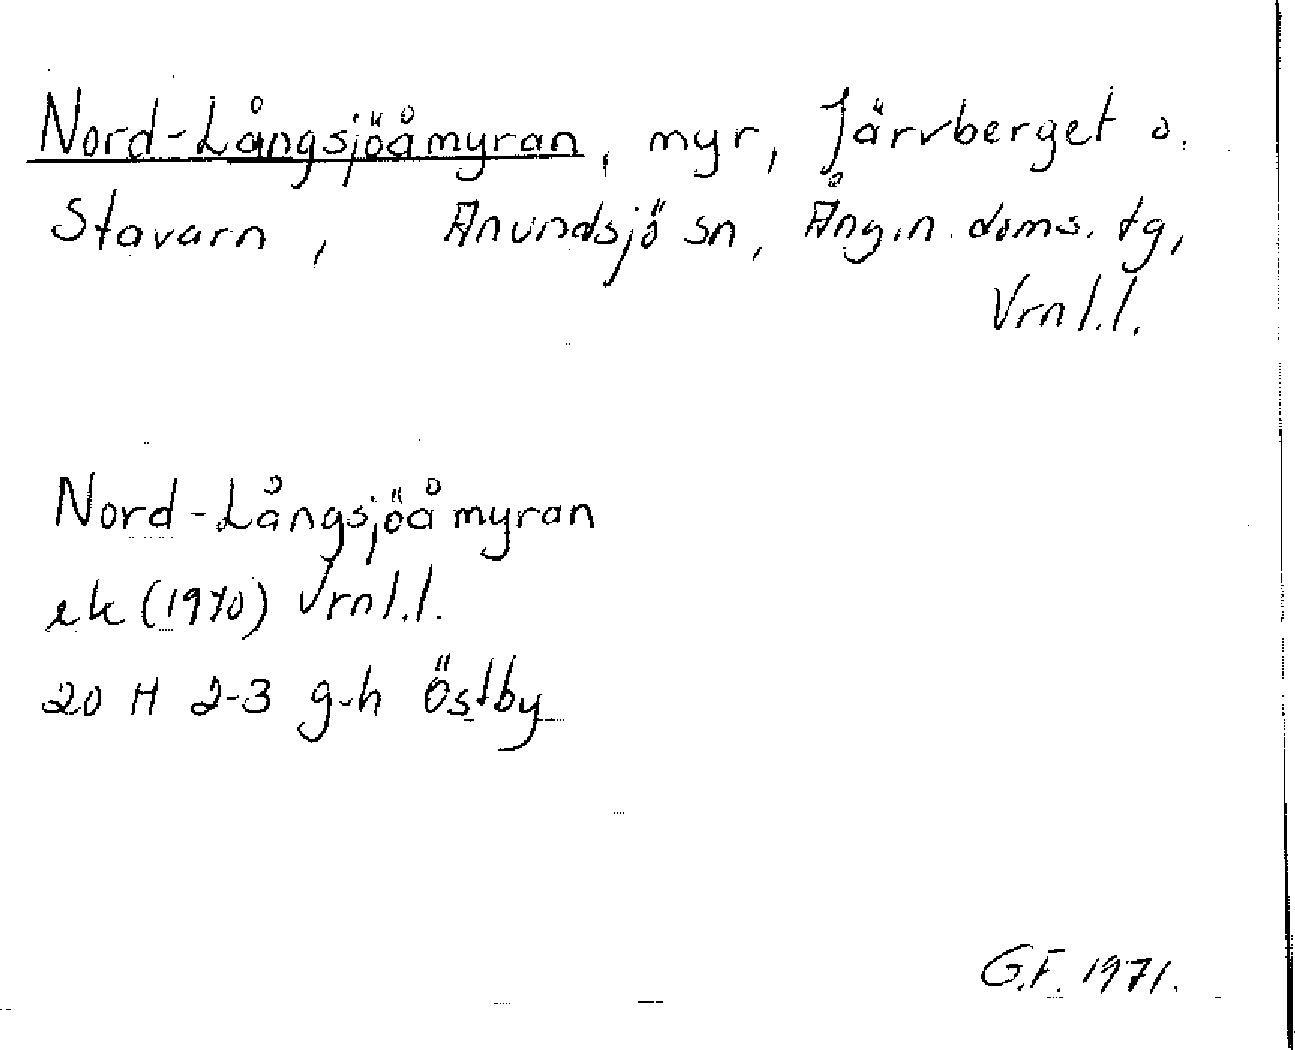 Nord-Långsjöåmyran, myr, Järvberget o.
Stavarn, Anundsjö sn, Ång.n. doms. tg,
Vrnl.l.
Nord-Långsjöåmyran
ek (1970) Vrnl.l.
20 H 2-3 g-h Östby
G.F. 1971.